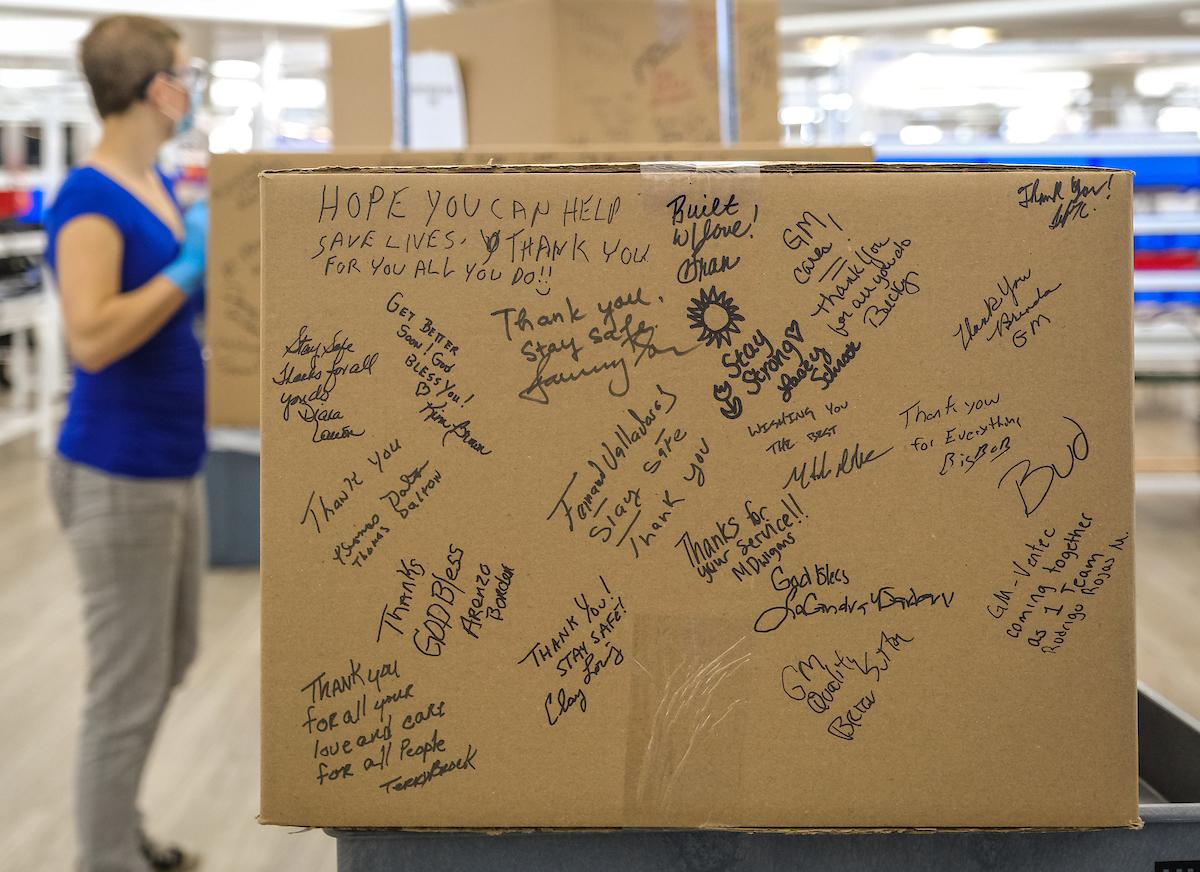 HOPE YOU CAN HELP
SAVE LIVES. THANK YOU
FOR YOU ALL YOU DO!!
Built
w/love!
Fran
GM
Cares!
Thank you
for all you do
Becky
Thank You!
Thank You
Brenda
GM
GET BETTER
SOON! GOD
BLESS YOU!
Kim Brown
Thank you.
Stay safe.
Stay
Strong
Lacey
Schrock
Stay Safe
Thanks for all
you do
Diana
Lawson
WISHING YOU
THE BEST
Thank you
for Everything
BigBoB
Bud
Fernand Valladares
Stay Safe
Thank you
THANK YOU
Thomas Dalton
Thomas Dalton
Thanks for
your service!!
M Dwigans
God Bless
GM-Ventec
coming together
as 1 Team
Rodrigo Rojas M.
THANKS
GOD Bless
Arenzo
Borden
THANK YOU!
STAY SAFE!
Clay Long
GM
Quality
Brita Sutton
THANK you
for all your
love and care
for all People
Terry Brock